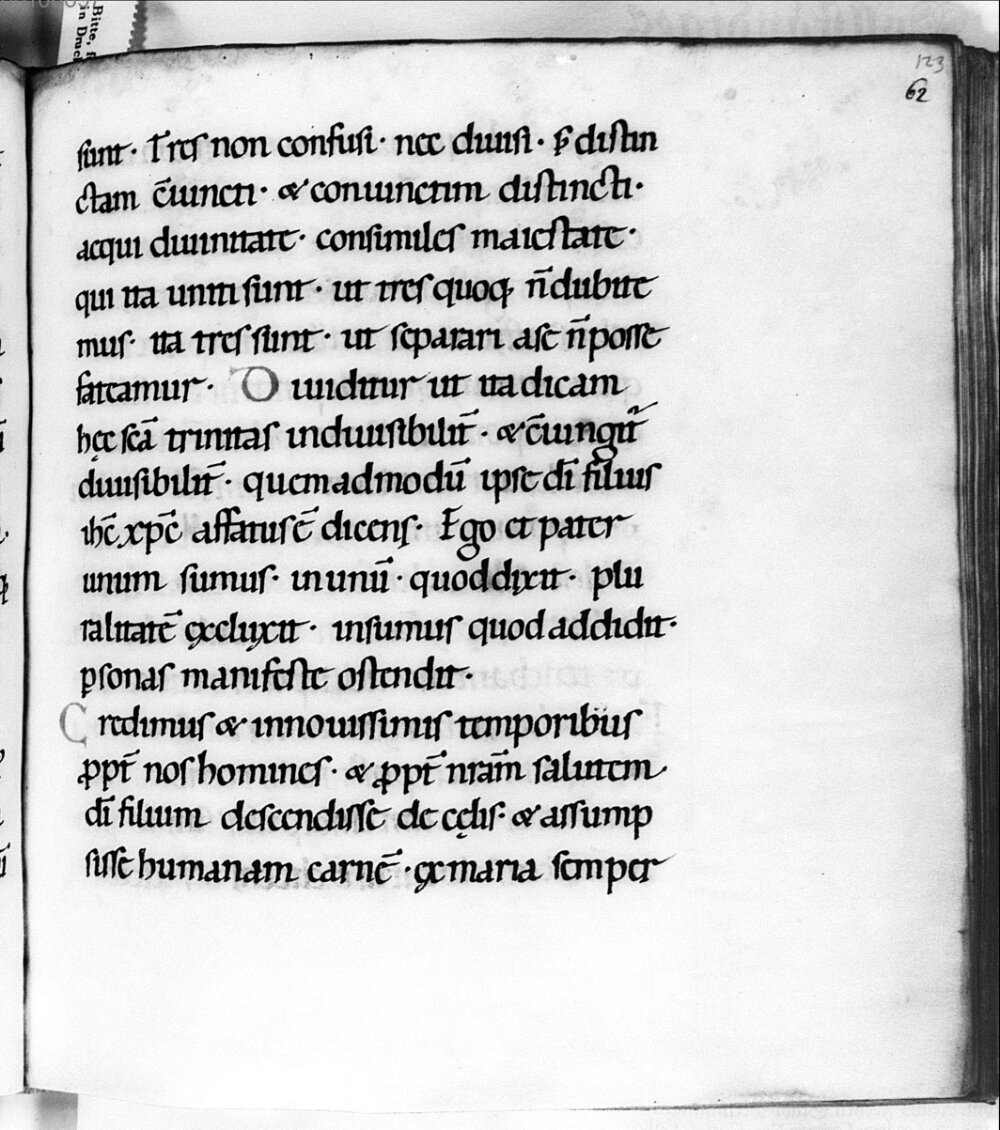 Bitte, f
in Druc
123
62
sunt · Tres non confusi · nec diuisi · s; distin
ctam c̄iuncti · & coniunctim distincti ·
aequi diuinitate · consimiles maiestate ·
qui ita uniti sunt · ut tres quoq; n̄ dubite
mus · ita tres sunt · ut separari a se n̄ posse
fateamur · Diuiditur ut ita dicam
hęc scā trinitas indiuisibilit̄ · & c̄iungit̄
diuisibilit̄ · quemadmodū ipse dī filius
ihc̄ xpc̄ affatus ē dicens · Ego et pater
unum sumus · in unū · quod dixit · plu
ralitatē exclusit · in sumus quod addidit ·
ꝑsonas manifeste ostendit ·
Credimus & in nouissimis temporibus
ꝓpt̄ nos homines · & ꝓpt̄ nrām salutem
dī filium descendisse de cęlis · & assump
sisse humanam carnē · ex maria semper